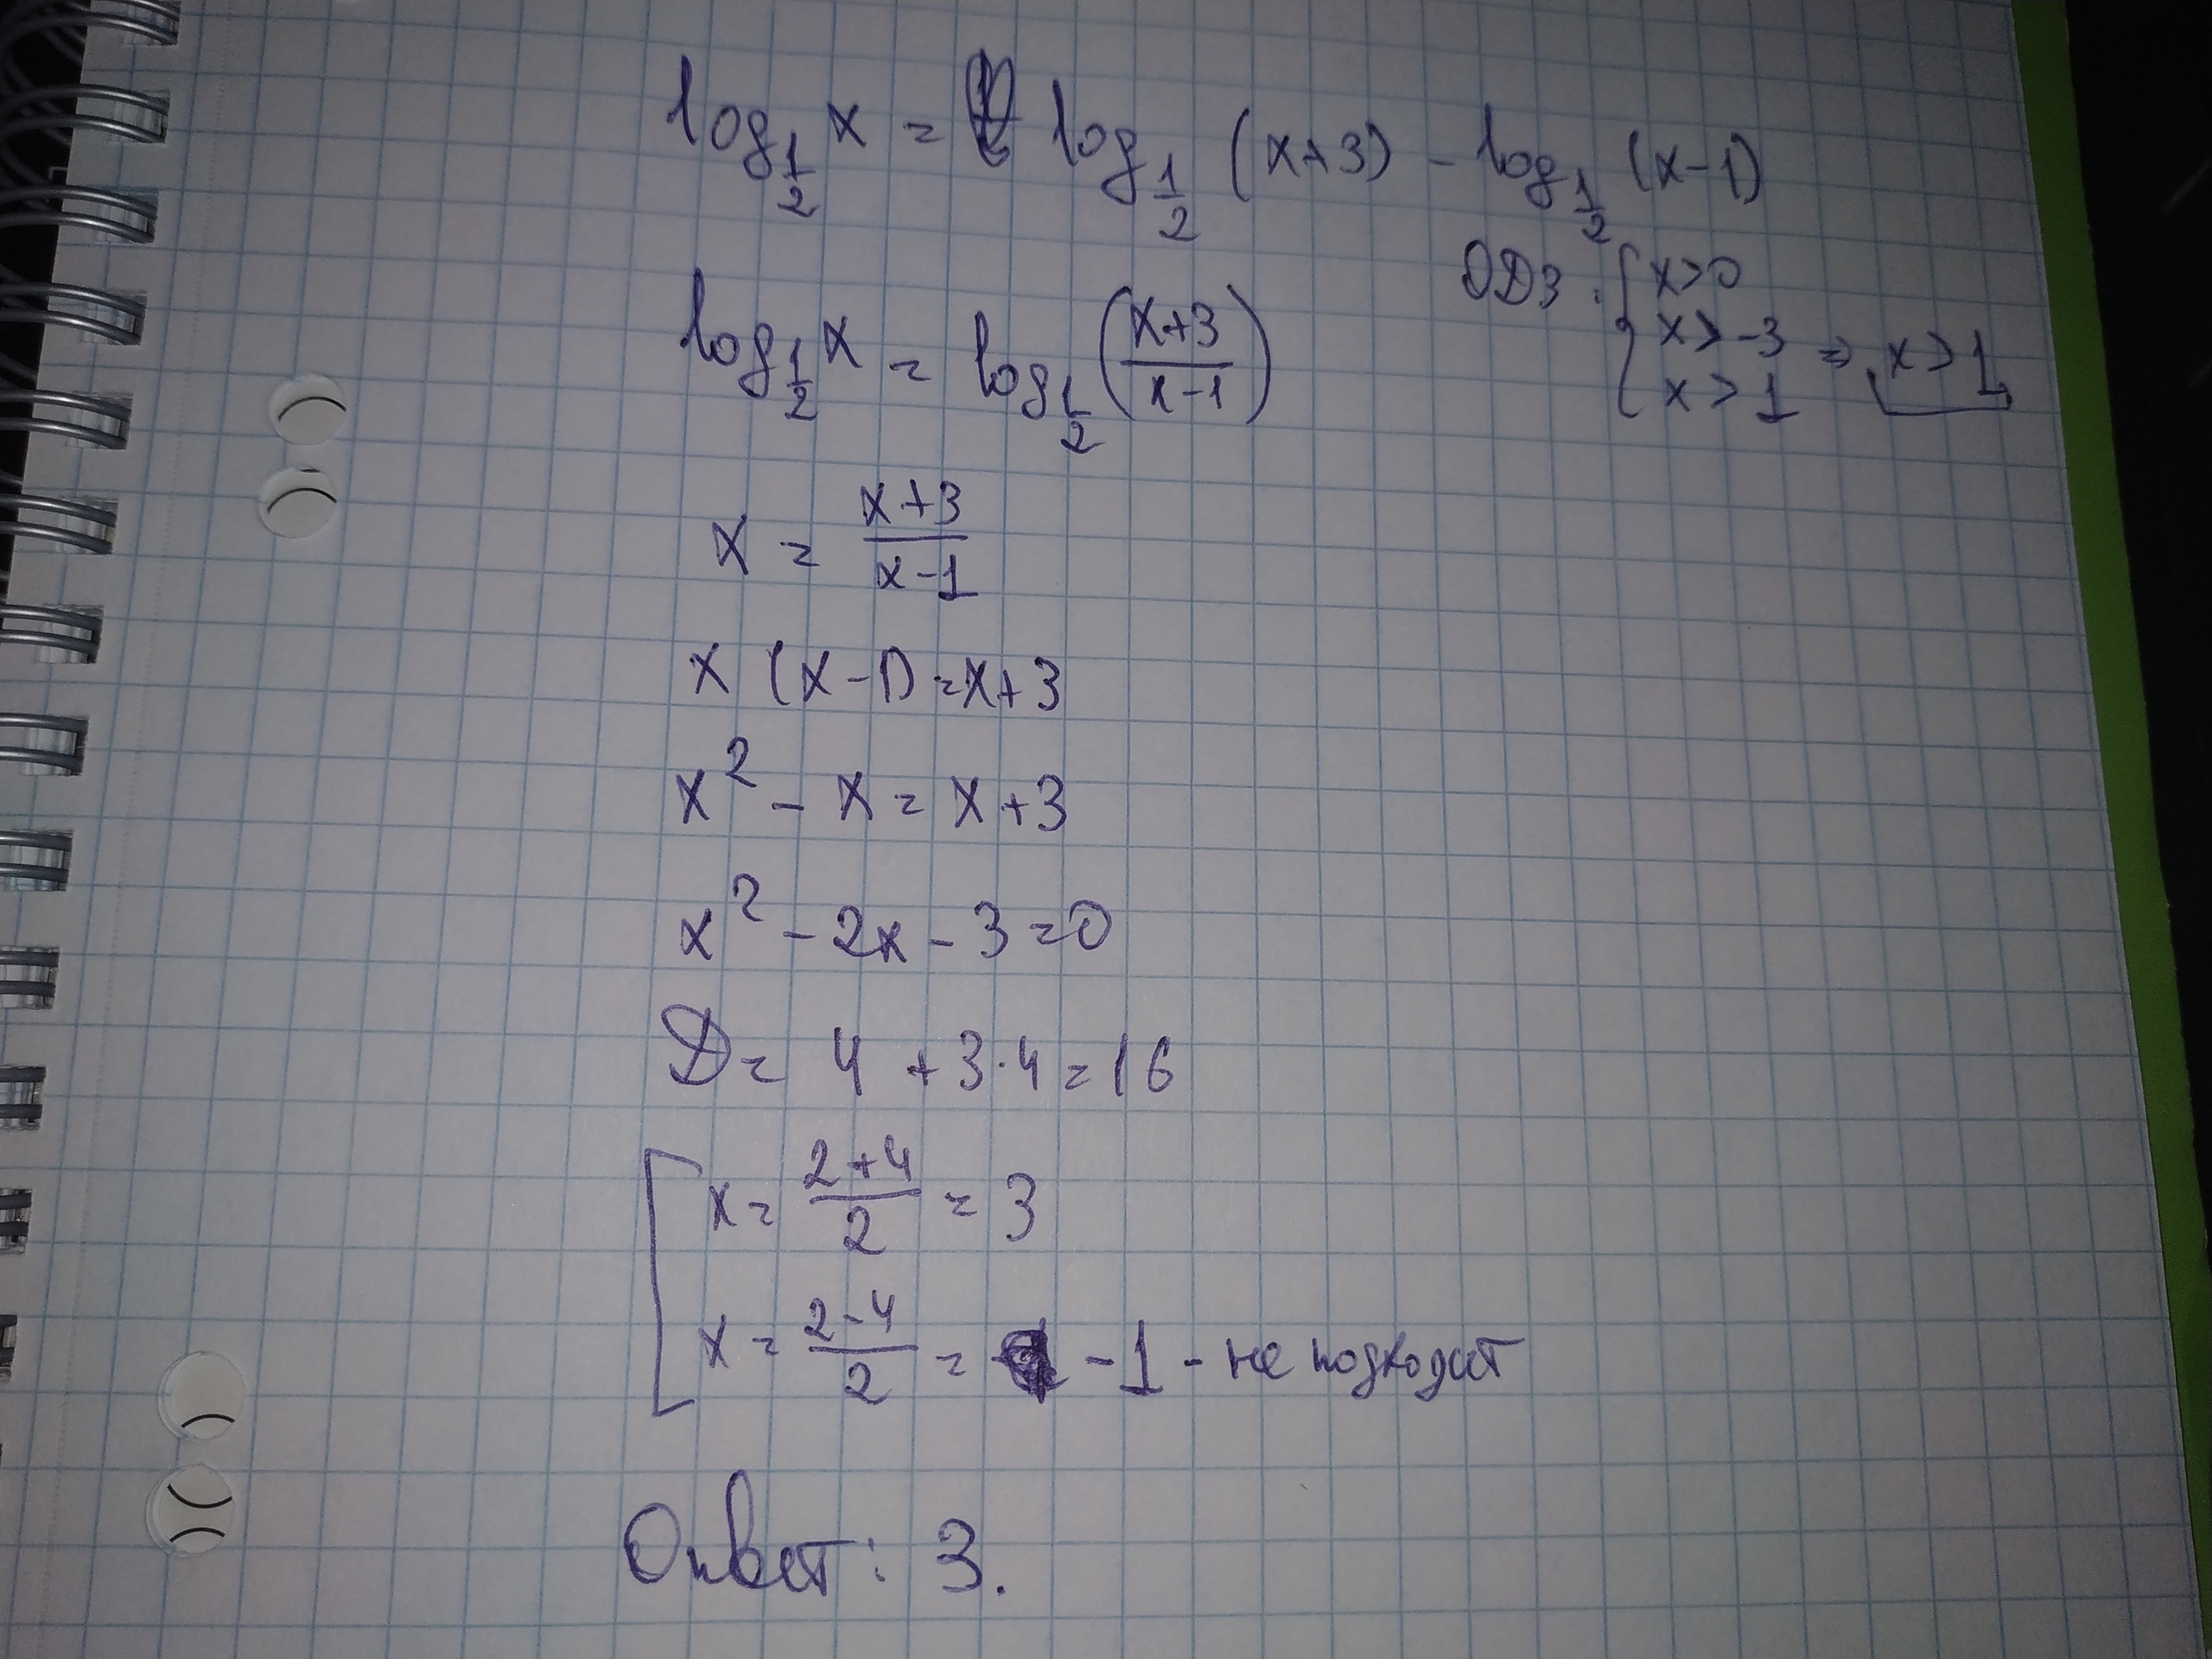 log_{1/2} x = log_{1/2} (x+3) - log_{1/2} (x-1)
ОДЗ: { x>0
x>-3 ⇒ x>1
x>1
log_{1/2} x = log_{1/2} ((x+3)/(x-1))
x = (x+3)/(x-1)
x (x-1) = x+3
x² - x = x+3
x² - 2x - 3 = 0
D = 4 + 3·4 = 16
[ x = (2+4)/2 = 3
x = (2-4)/2 = -1 - не подходит
Ответ: 3.